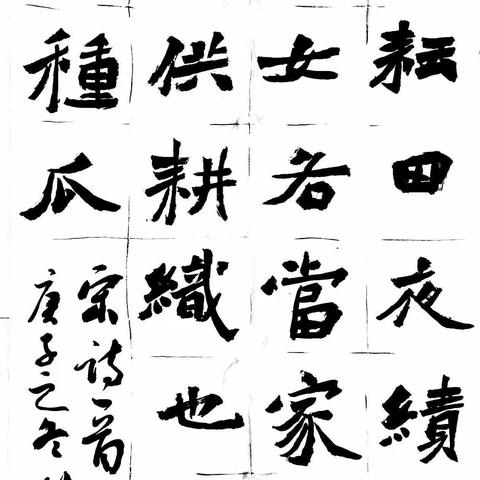 耘田夜績
女各當家
供耕織也
種瓜
宋詩一首
庚子之冬